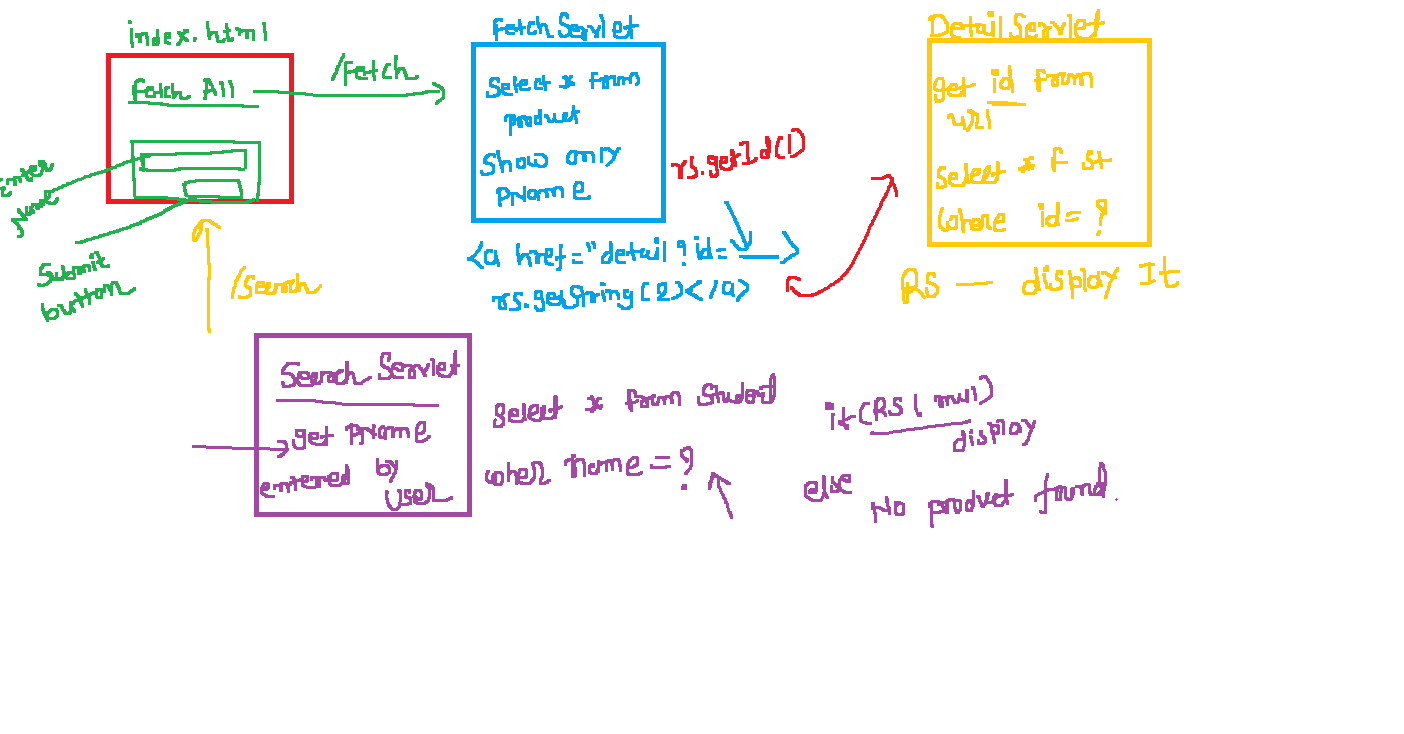 index.html
Fetch All
Enter
Name
Submit
button
/Fetch
Fetch Servlet
Select * from
product
Show only
PName
rs.getId(1)
<a href="detail?id= >
rs.getString(2)</a>
Detail Servlet
get id from
url
Select * f st
where id=?
RS — display It
/Search
Search Servlet
get PName
entered by
User
Select * from Student
when name=?
if(RS ! null)
display
else
No product found.